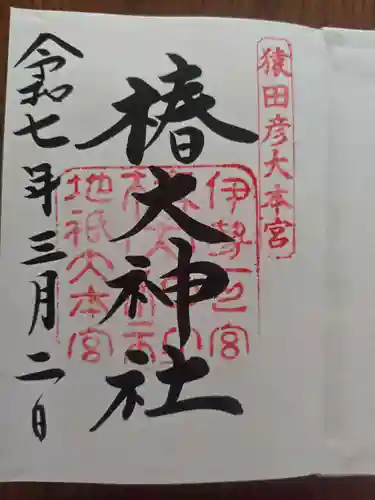 猿田彦大本宮
椿大神社
伊勢一之宮
地祇大本宮
令和七年三月二日